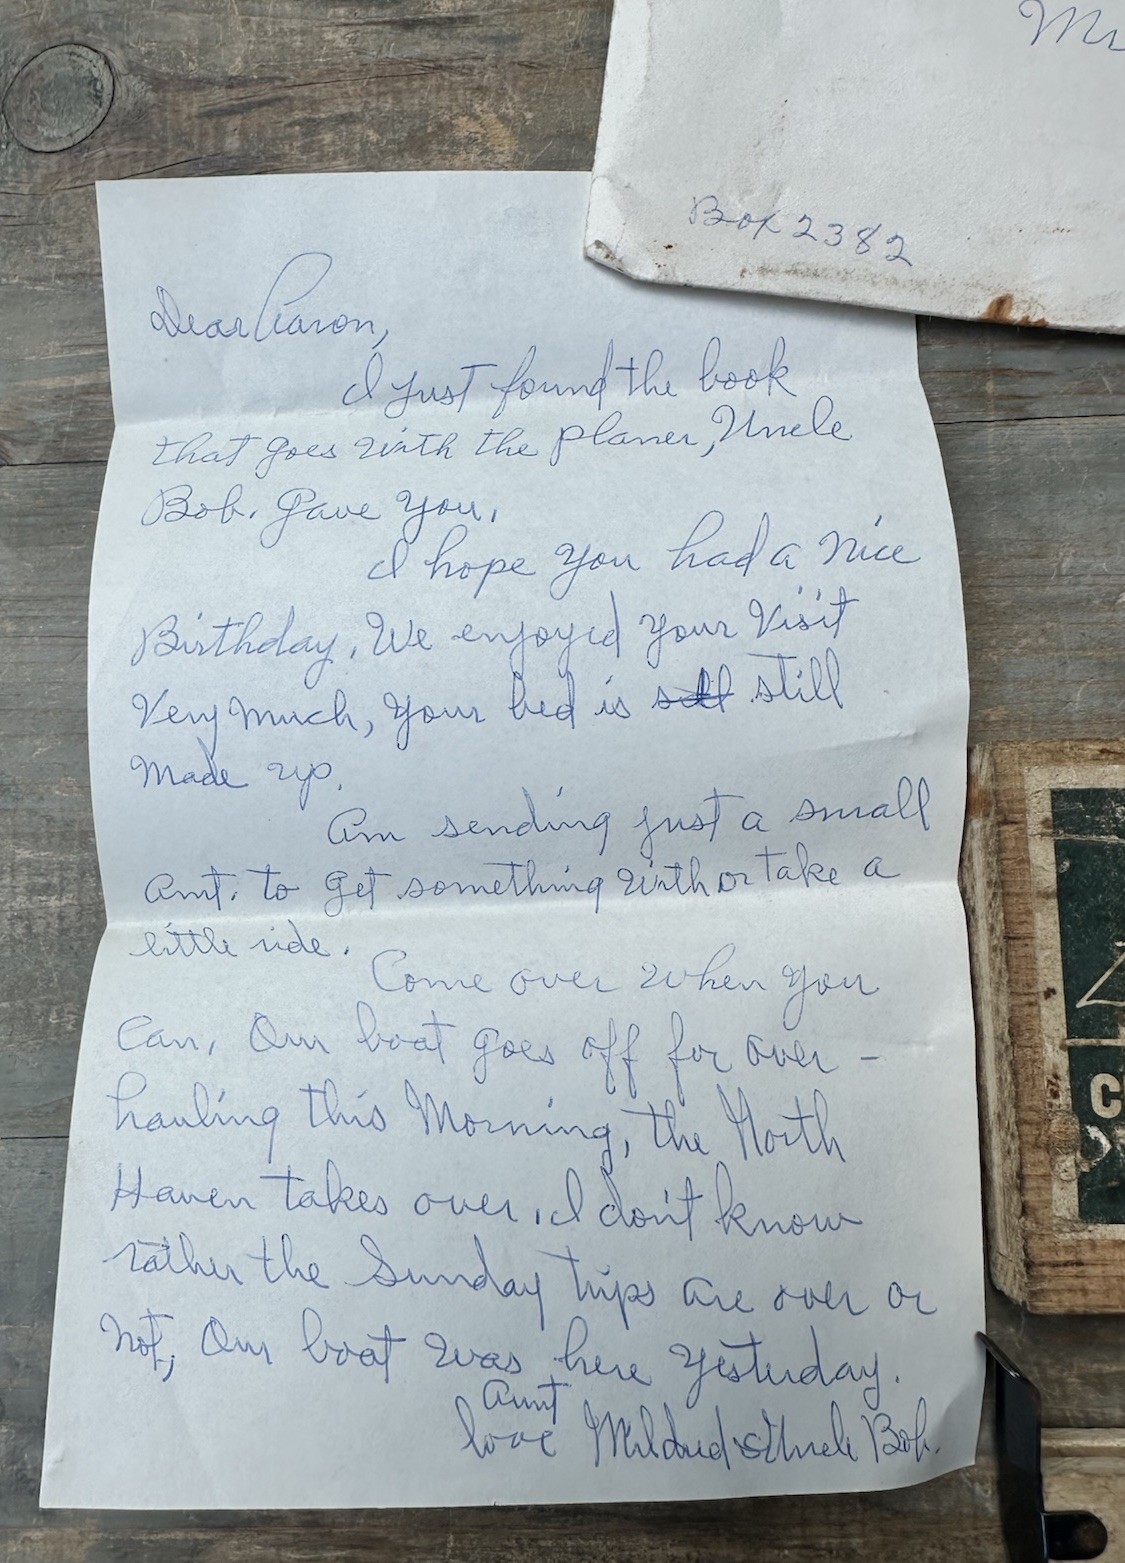 Mr
Box 2382
Dear Aaron,
I just found the book
that goes with the planer, Uncle
Bob. Gave You.
I hope you had a nice
Birthday. We enjoyed your Visit
Very much, your bed is still still
Made up.
Am sending just a small
amt. to get something with or take a
little ride.
Come over when you
Can, Our boat goes off for over -
hauling this Morning, the North
Haven takes over. I don't know
rather the Sunday trips are over or
Not, Our boat was here yesterday.
Aunt
love Mildred & Uncle Bob.
C